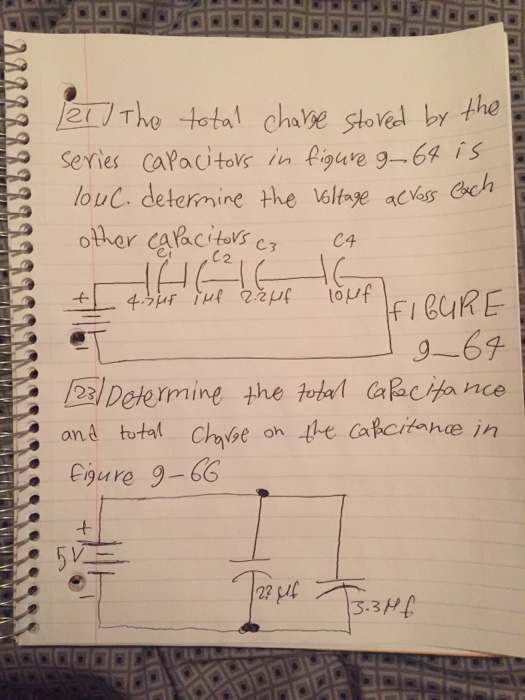 21) The total charge stored by the
series capacitors in figure 9-64 is
10uC. determine the voltage across each
other capacitors
C1 C2 C3 C4
+ 4.7µf 1µf 2.2µf 10µf
-
FIGURE
9_64
23) Determine the total capacitance
and total charge on the capacitance in
figure 9-66
+
5V
-
22 µf
3.3µf